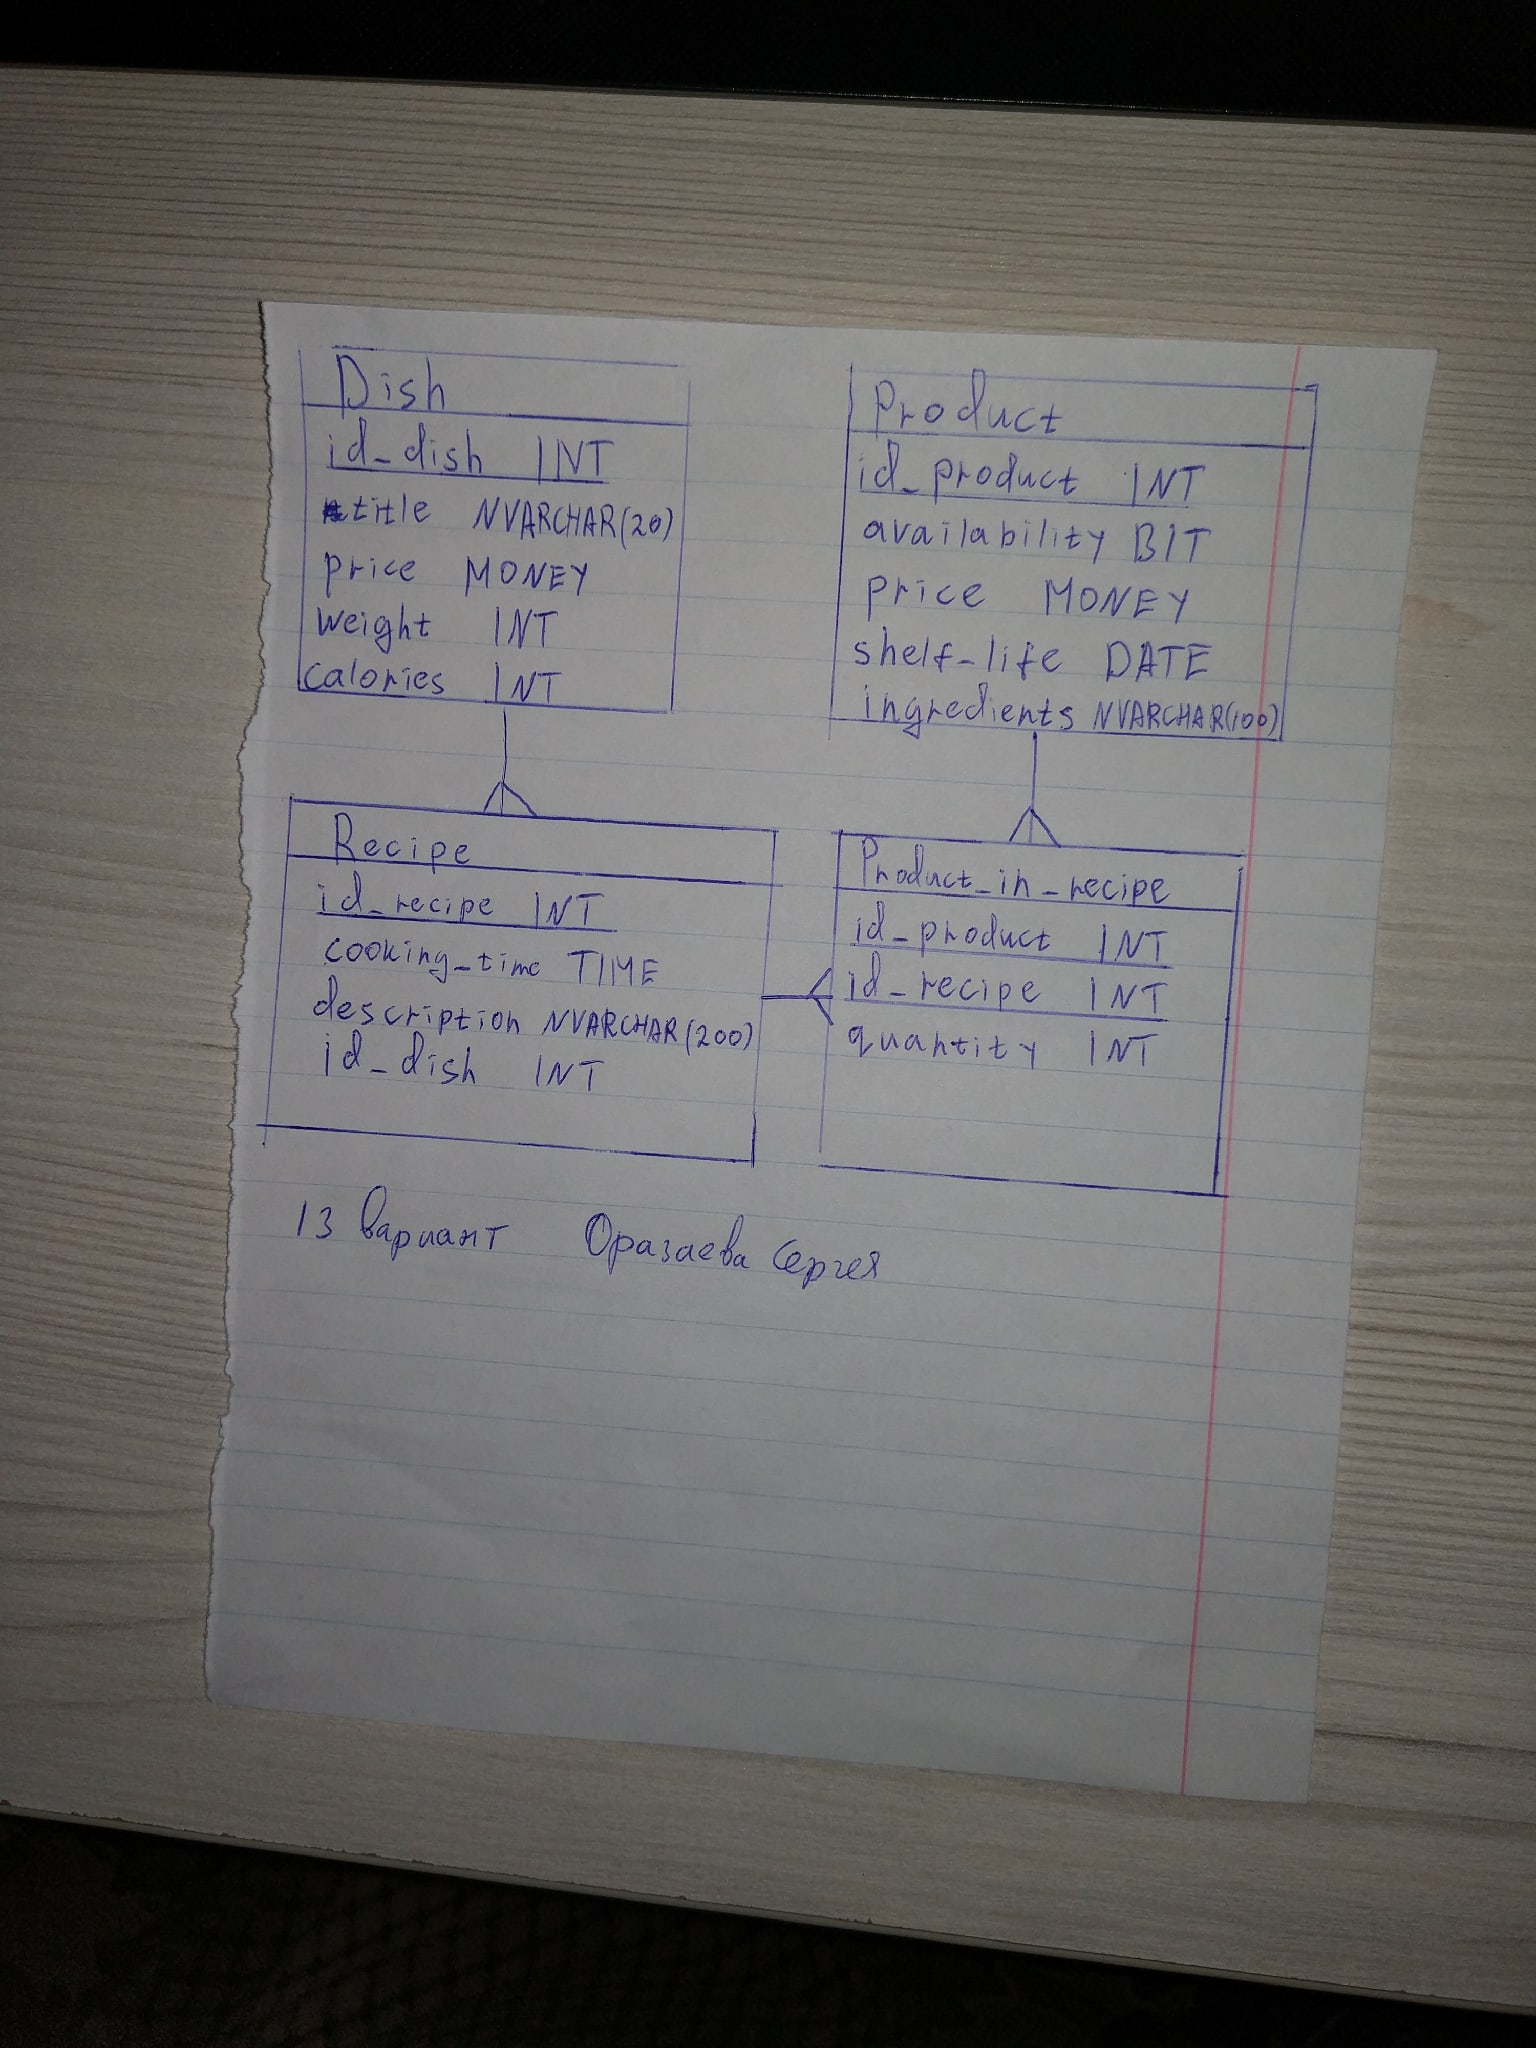 Dish
id_dish INT
title NVARCHAR(20)
price MONEY
weight INT
calories INT
Product
id_product INT
availability BIT
price MONEY
shelf-life DATE
ingredients NVARCHAR(100)
Recipe
id_recipe INT
cooking_time TIME
description NVARCHAR(200)
id_dish INT
Product_in_recipe
id_product INT
id_recipe INT
quantity INT
13 вариант Оразаева Сергея